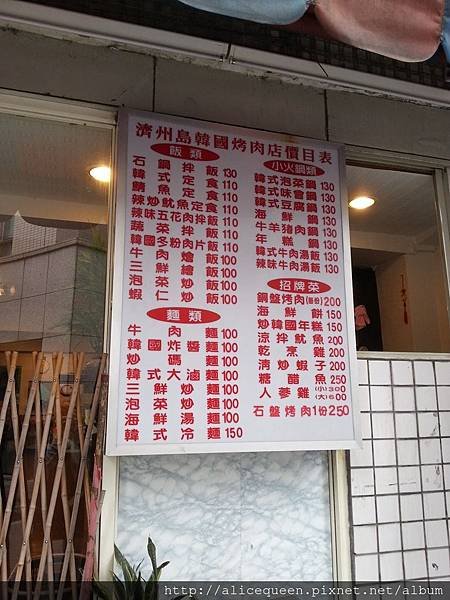 濟州島韓國烤肉店價目表
飯類
石鍋拌飯130
韓式定食110
鯖魚定食110
辣炒魷魚定食110
辣味五花肉拌飯110
蔬菜拌飯110
韓國多粉肉片飯110
牛肉燴飯100
三鮮繪飯100
泡菜炒飯100
蝦仁炒飯100
麵類
牛肉麵100
韓國炸醬麵100
炒碼麵100
韓式大滷麵100
三鮮炒麵100
泡菜炒麵100
海鮮湯麵100
韓式冷麵150
小火鍋類
韓式泡菜鍋130
韓式味會鍋130
韓式豆腐鍋130
海鮮鍋130
牛羊豬肉鍋130
年糕鍋130
韓式牛肉湯飯130
辣味牛肉湯飯130
招牌菜
銅盤烤肉(每份)200
海鮮餅150
炒韓國年糕150
涼拌魷魚200
乾烹雞200
清炒蝦子200
糖醋魚250
人參雞(小)300
(大)600
石盤烤肉1份250
http://alicequeen.pixnet.net/album